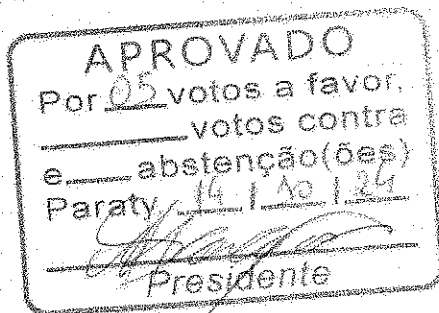 APROVADO
Por 05 votos a favor,
______ votos contra
e ____ abstenção(ões)
Paraty 14 / 10 / 24
Presidente